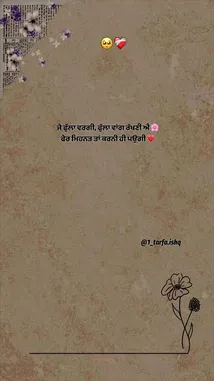 🥺❤️‍🩹
ਜੇ ਫੁੱਲਾ ਵਰਗੀ, ਫੁੱਲਾ ਵਾਂਗ ਰੱਖਣੀ ਐ🌸
ਫੇਰ ਮਿਹਨਤ ਤਾਂ ਕਰਨੀ ਹੀ ਪਊਗੀ❤️
@1_tarfa.ishq